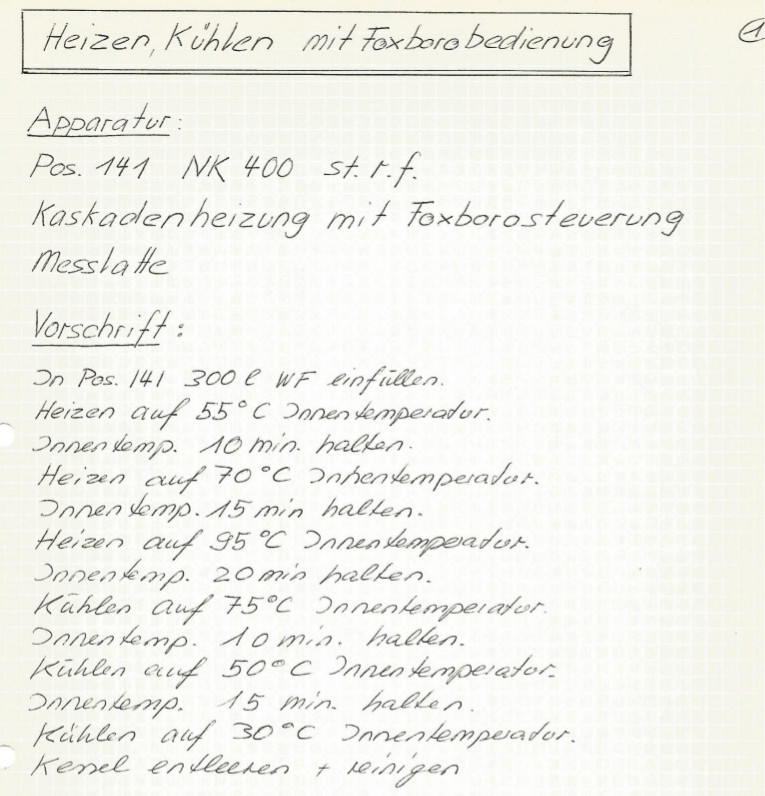 Heizen, Kühlen mit Foxborobedienung
1
Apparatur:
Pos. 141 NK 400 st. r. f.
Kaskadenheizung mit Foxborosteuerung
Messlatte
Vorschrift:
In Pos. 141 300 l WF einfüllen.
Heizen auf 55°C Innentemperatur.
Innentemp. 10 min. halten.
Heizen auf 70°C Innentemperatur.
Innentemp. 15 min halten.
Heizen auf 95°C Innentemperatur.
Innentemp. 20 min halten.
Kühlen auf 75°C Innentemperatur.
Innentemp. 10 min. halten.
Kühlen auf 50°C Innentemperatur.
Innentemp. 15 min. halten.
Kühlen auf 30°C Innentemperatur.
Kessel entleeren + reinigen